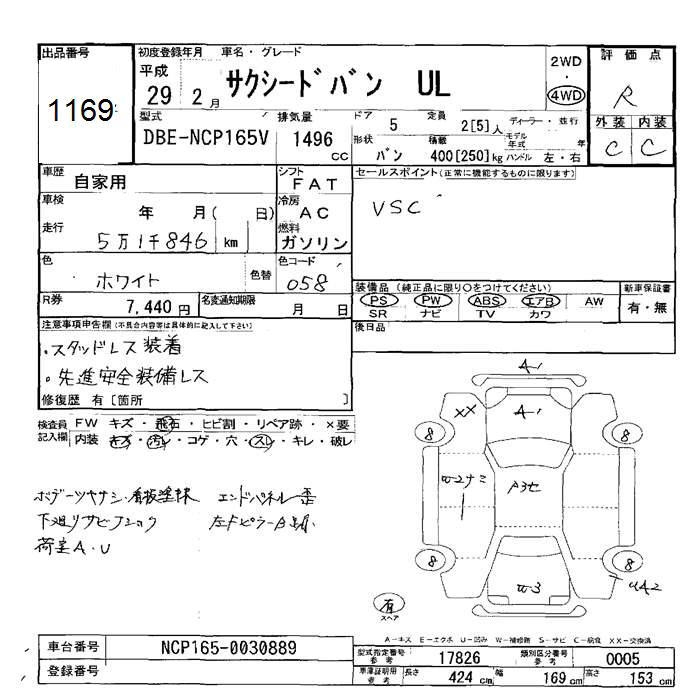 出品番号
1169
初度登録年月 車名・グレード
平成
29 2月
サクシードバン UL
2WD
・
4WD
評価点
R
外装 内装
C C
型式
DBE-NCP165V
排気量
1496
cc
ドア
5
定員
2[5]人
ディーラー・並行
形状
バン
積載
400[250]kg
モデル年式 年
ハンドル 左・右
車歴
自家用
シフト
FAT
車検
年 月( 日)
冷房
AC
走行
5万1千846 km
燃料
ガソリン
セールスポイント(正常に機能するものに限ります)
VSC
色
ホワイト
色替
色コード
058
R券
7,440円
名変通知期限
月 日
装備品(純正品に限り○をつけてください)
PS PW ABS エアB AW
SR ナビ TV カワ
新車保証書
有・無
後日品
注意事項申告欄(不具合内容等は具体的に記入して下さい)
・スタッドレス装着
・先進安全装備レス
修復歴 有[箇所 ]
検査員記入欄
FW キズ・飛石・ヒビ割・リペア跡・×要
内装 キズ・汚レ・コゲ・穴・スレ・キレ・破レ
ボデーツヤナシ・看板塗抹 エンドパネル歪
下廻りサビ
荷室A・U
A1
XX
A1
8
8
8
8
U42
有
スペア
A-キズ E-エクボ U-凹み W-補修跡 S-サビ C-腐食 XX-交換済
車台番号
NCP165-0030889
登録番号
型式指定番号
参考
17826
類別区分番号
参考
0005
車庫証明用
参考
長さ
424 cm
幅
169 cm
高さ
153 cm